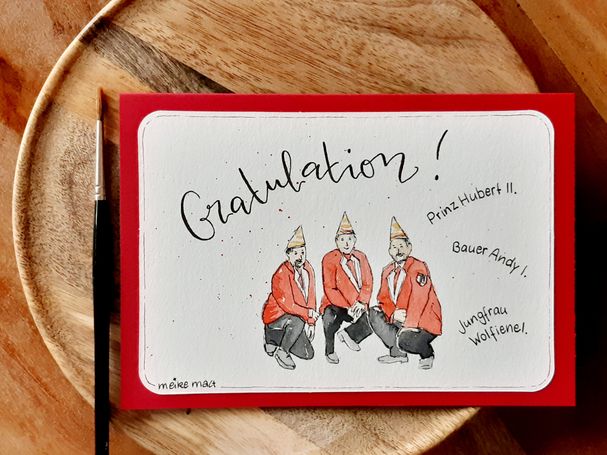 Gratulation!
Prinz Hubert II.
Bauer Andy I.
Jungfrau
Wolfiene I.
meike malt